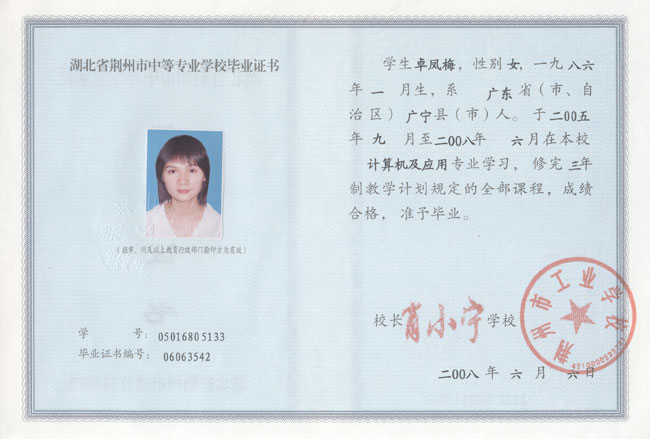 湖北省荆州市中等专业学校毕业证书
（经市、州及以上教育行政部门验印方为有效）
学 号：05016805133
毕业证书编号：06063542
学生卓凤梅，性别女，一九八六
年一月生，系 广东省（市、自
治区）广宁县（市）人。于二00五
年九月至二00八年 六月在本校
计算机及应用专业学习，修完三年
制教学计划规定的全部课程，成绩
合格，准予毕业。
校长 肖小宁 学校
荆州市工业学校
二00八年六月六日